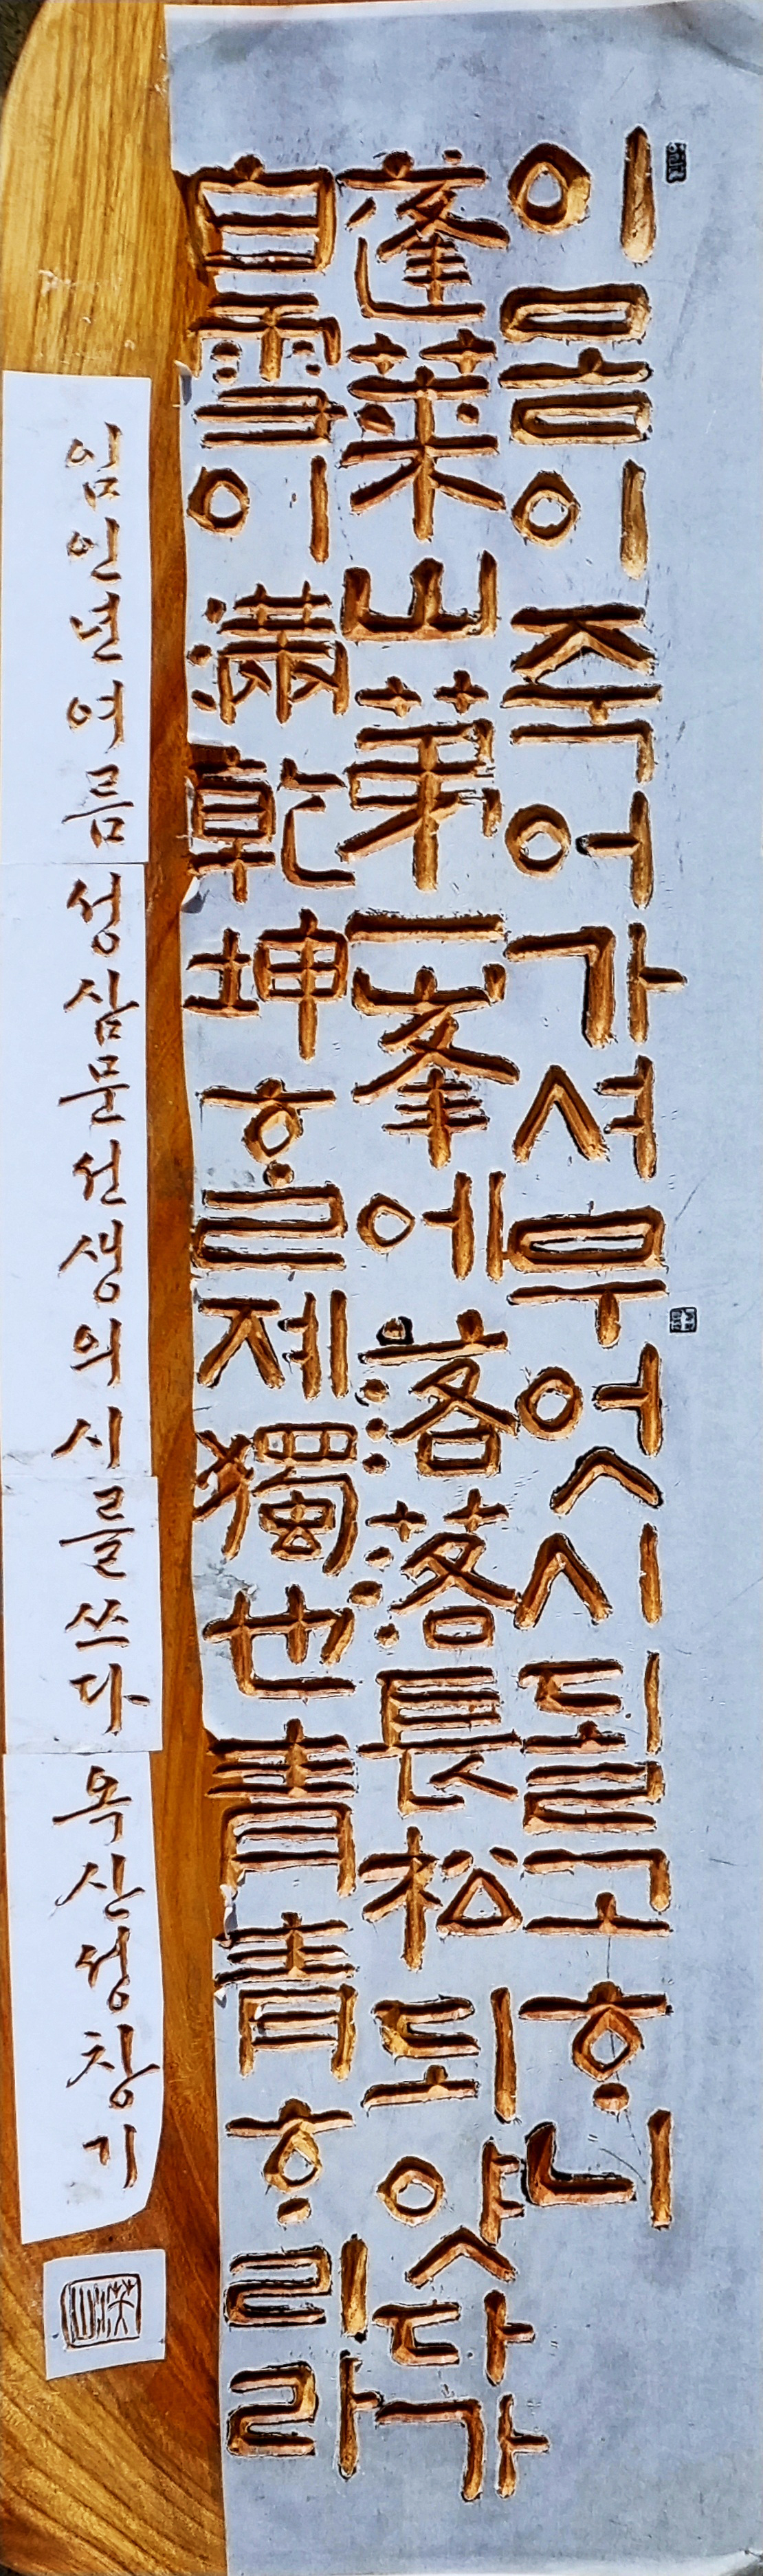 이몸이죽어가셔무엇시될고ᄒᆞ니
蓬萊山第一峯에落落長松되얏다가
白雪이滿乾坤ᄒᆞᆯ졔獨也靑靑ᄒᆞ리라
임인년여름성삼문선생의시를쓰다옥산성창기